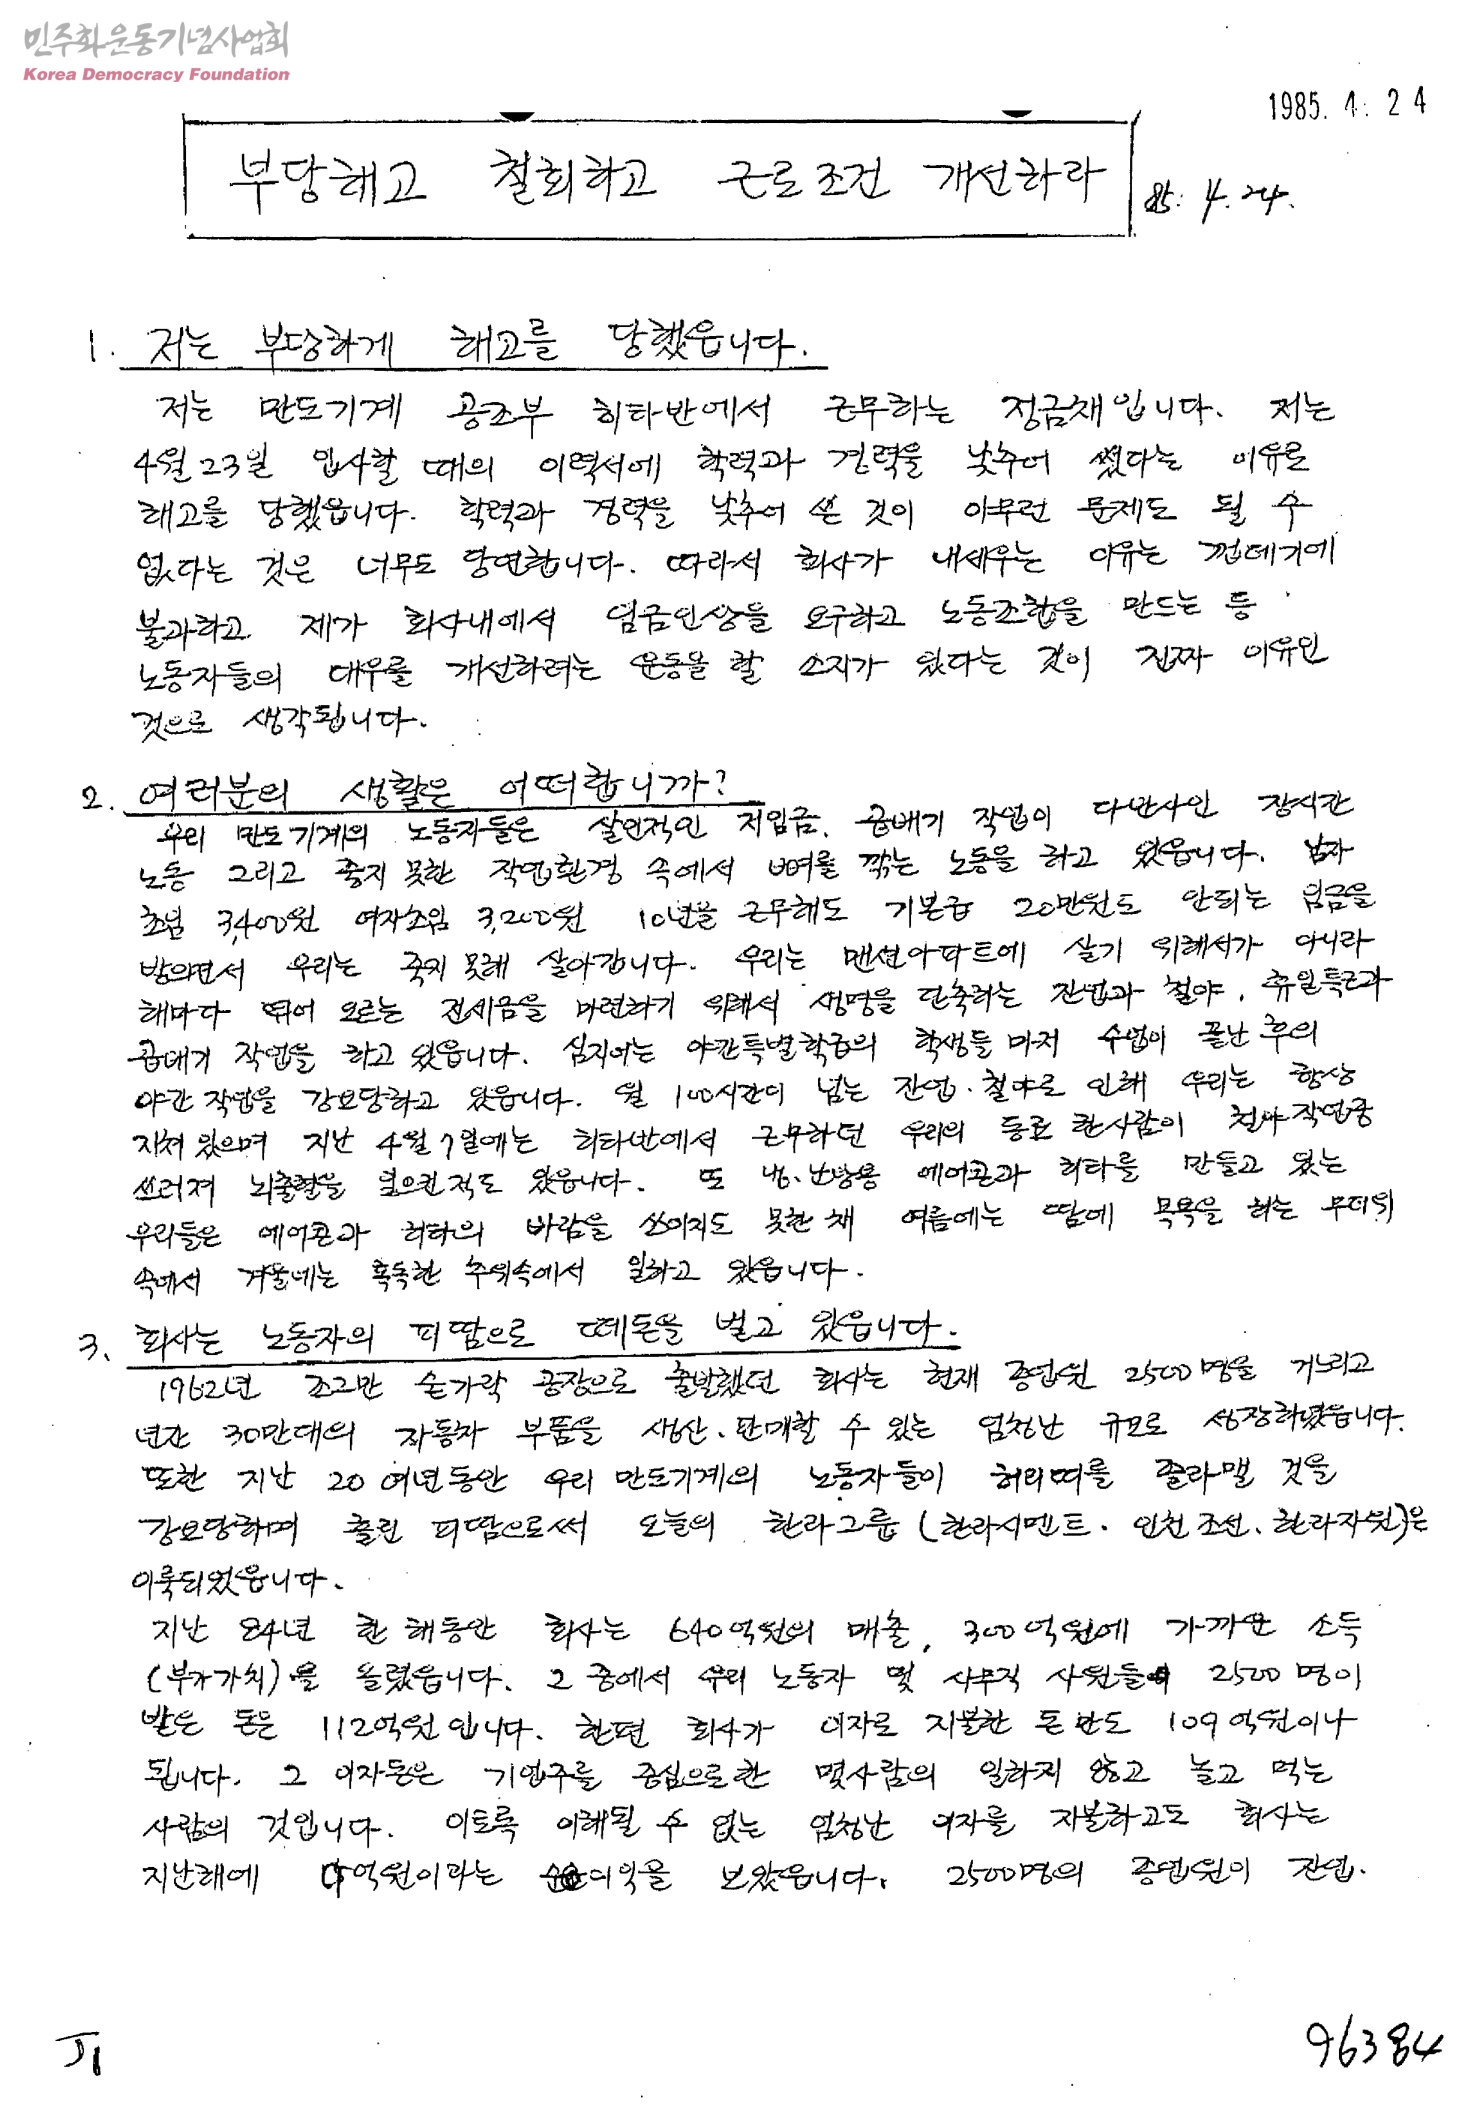 민주화운동기념사업회
Korea Democracy Foundation
1985. 4. 24
부당해고 철회하고 근로조건 개선하라
85. 4. 24.
1. 저는 부당하게 해고를 당했읍니다.
저는 만도기계 공조부 히타반에서 근무하는 정금채입니다. 저는
4월 23일 입사할 때의 이력서에 학력과 경력을 낮추어 썼다는 이유로
해고를 당했읍니다. 학력과 경력을 낮추어 쓴 것이 아무런 문제도 될 수
없다는 것은 너무도 당연합니다. 따라서 회사가 내세우는 이유는 껍데기에
불과하고 제가 회사내에서 임금인상을 요구하고 노동조합을 만드는 등
노동자들의 대우를 개선하려는 운동을 할 소지가 있다는 것이 진짜 이유인
것으로 생각됩니다.
2. 여러분의 생활은 어떠합니까?
우리 만도기계의 노동자들은 살인적인 저임금, 곱배기 작업이 다반사인 장시간
노동 그리고 좋지 못한 작업환경 속에서 뼈를 깎는 노동을 하고 있읍니다. 남자
초임 3,400원 여자초임 3,200원 10년을 근무해도 기본급 20만원도 안되는 임금을
받으면서 우리는 죽지 못해 살아갑니다. 우리는 맨션아파트에 살기 위해서가 아니라
해마다 뛰어 오르는 전세금을 마련하기 위해서 생명을 단축하는 잔업과 철야, 휴일특근과
곱배기 작업을 하고 있읍니다. 심지어는 야간특별학급의 학생들 마저 수업이 끝난 후의
야간 작업을 강요당하고 있읍니다. 월 100시간이 넘는 잔업·철야로 인해 우리는 항상
지쳐 있으며 지난 4월 7일에는 히타반에서 근무하던 우리의 동료 한사람이 철야작업중
쓰러져 뇌출혈을 일으킨적도 있읍니다. 또 냉·난방용 에어콘과 히타를 만들고 있는
우리들은 에어콘과 히타의 바람을 쏘이지도 못한 채 여름에는 땀에 목욕을 하는 무더위
속에서 겨울에는 혹독한 추위속에서 일하고 있읍니다.
3. 회사는 노동자의 피땀으로 떼돈을 벌고 있읍니다.
1962년 조그만 숟가락 공장으로 출발했던 회사는 현재 종업원 2500명을 거느리고
년간 30만대의 자동차 부품을 생산·판매할 수 있는 엄청난 규모로 성장하였읍니다.
또한 지난 20여년동안 우리 만도기계의 노동자들이 허리띠를 졸라맬 것을
강요당하며 흘린 피땀으로써 오늘의 한라그룹 (한라시멘트·인천조선·한라자원)은
이룩되었읍니다.
지난 84년 한 해동안 회사는 640억원의 매출, 300억원에 가까운 소득
(부가가치)을 올렸읍니다. 그 중에서 우리 노동자 및 사무직 사원들 2500명이
받은 돈은 112억원입니다. 한편 회사가 이자로 지불한 돈만도 109억원이나
됩니다. 그 이자돈은 기업주를 중심으로한 몇사람의 일하지 않고 놀고 먹는
사람의 것입니다. 이토록 이해될 수 없는 엄청난 이자를 지불하고도 회사는
지난해에 억원이라는 순이익을 보았읍니다. 2500명의 종업원이 잔업·
J1
96384